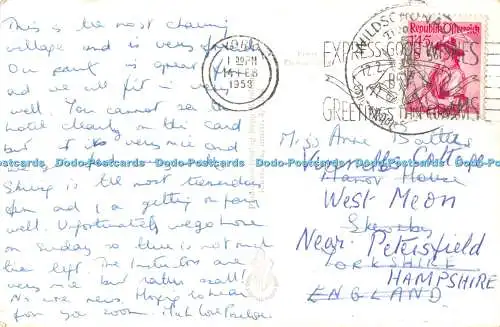 This is the most charming
village and is very friendly.
Our party is great fun
and we all fit in very
well. You cannot see the
hotel clearly on this card
but it is very nice and
Skiing is the most tremendous
fun and I am getting on fairly
well. Unfortunately we go home
on Sunday so there is not much
time left. The Instructors are
very nice but rather small!
No more news. Hoping to hear
from you soon. Much Love Penelope.
14 FEB
1953
EXPRESS GOOD WISHES
BY
GREETINGS TELEGRAMS
WILDSCHÖNAU
Republik Österreich
1.45
Miss Anne
Manor House
West Meon
Near Petersfield
YORKSHIRE
HAMPSHIRE
ENGLAND
Dodo-Postcards Dodo-Postcards Dodo-Postcards Dodo-Postcards